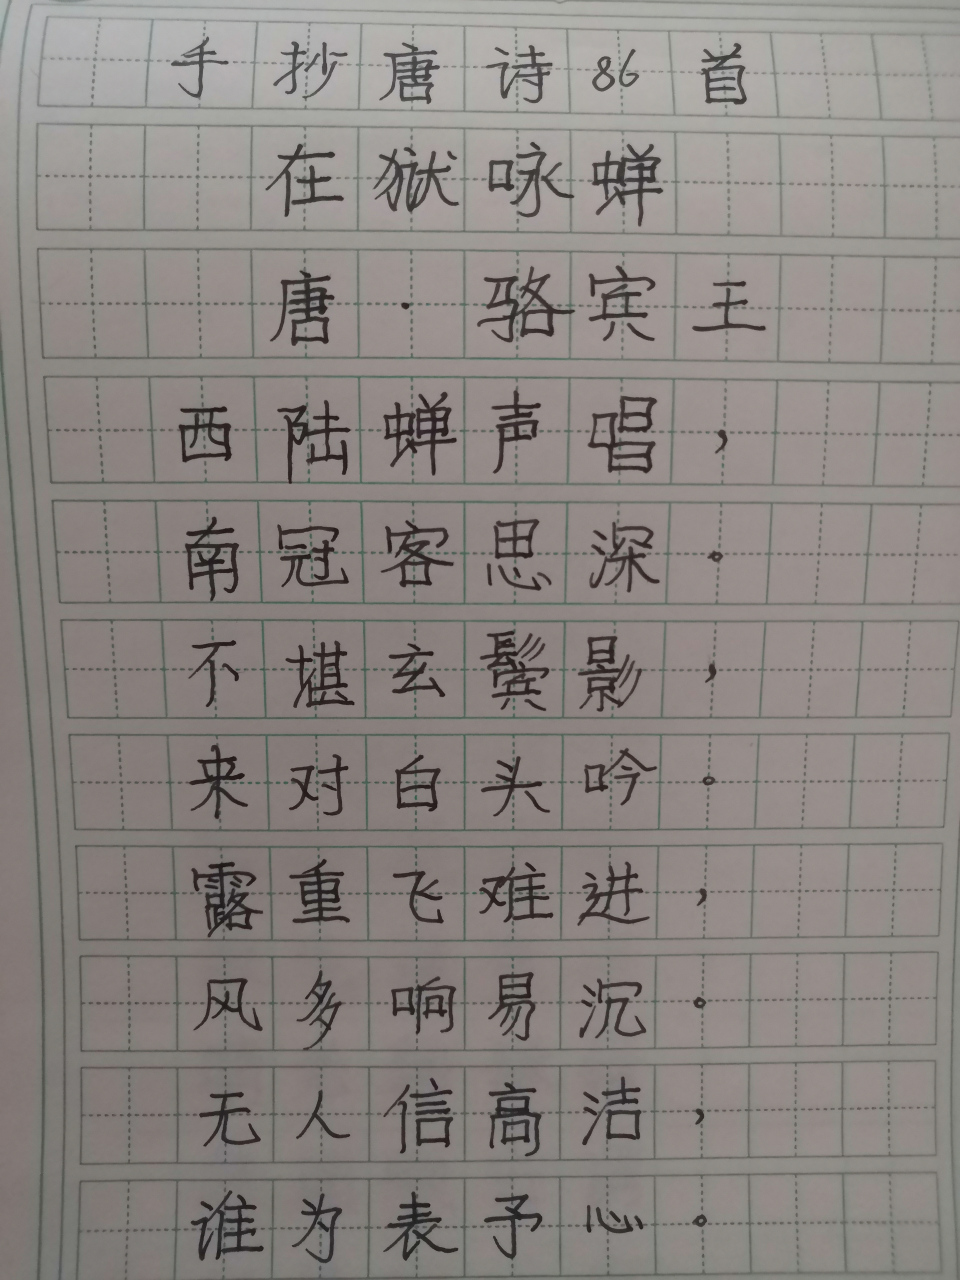 手抄唐诗86首
在狱咏蝉
唐·骆宾王
西陆蝉声唱，
南冠客思深。
不堪玄鬓影，
来对白头吟。
露重飞难进，
风多响易沉。
无人信高洁，
谁为表予心。